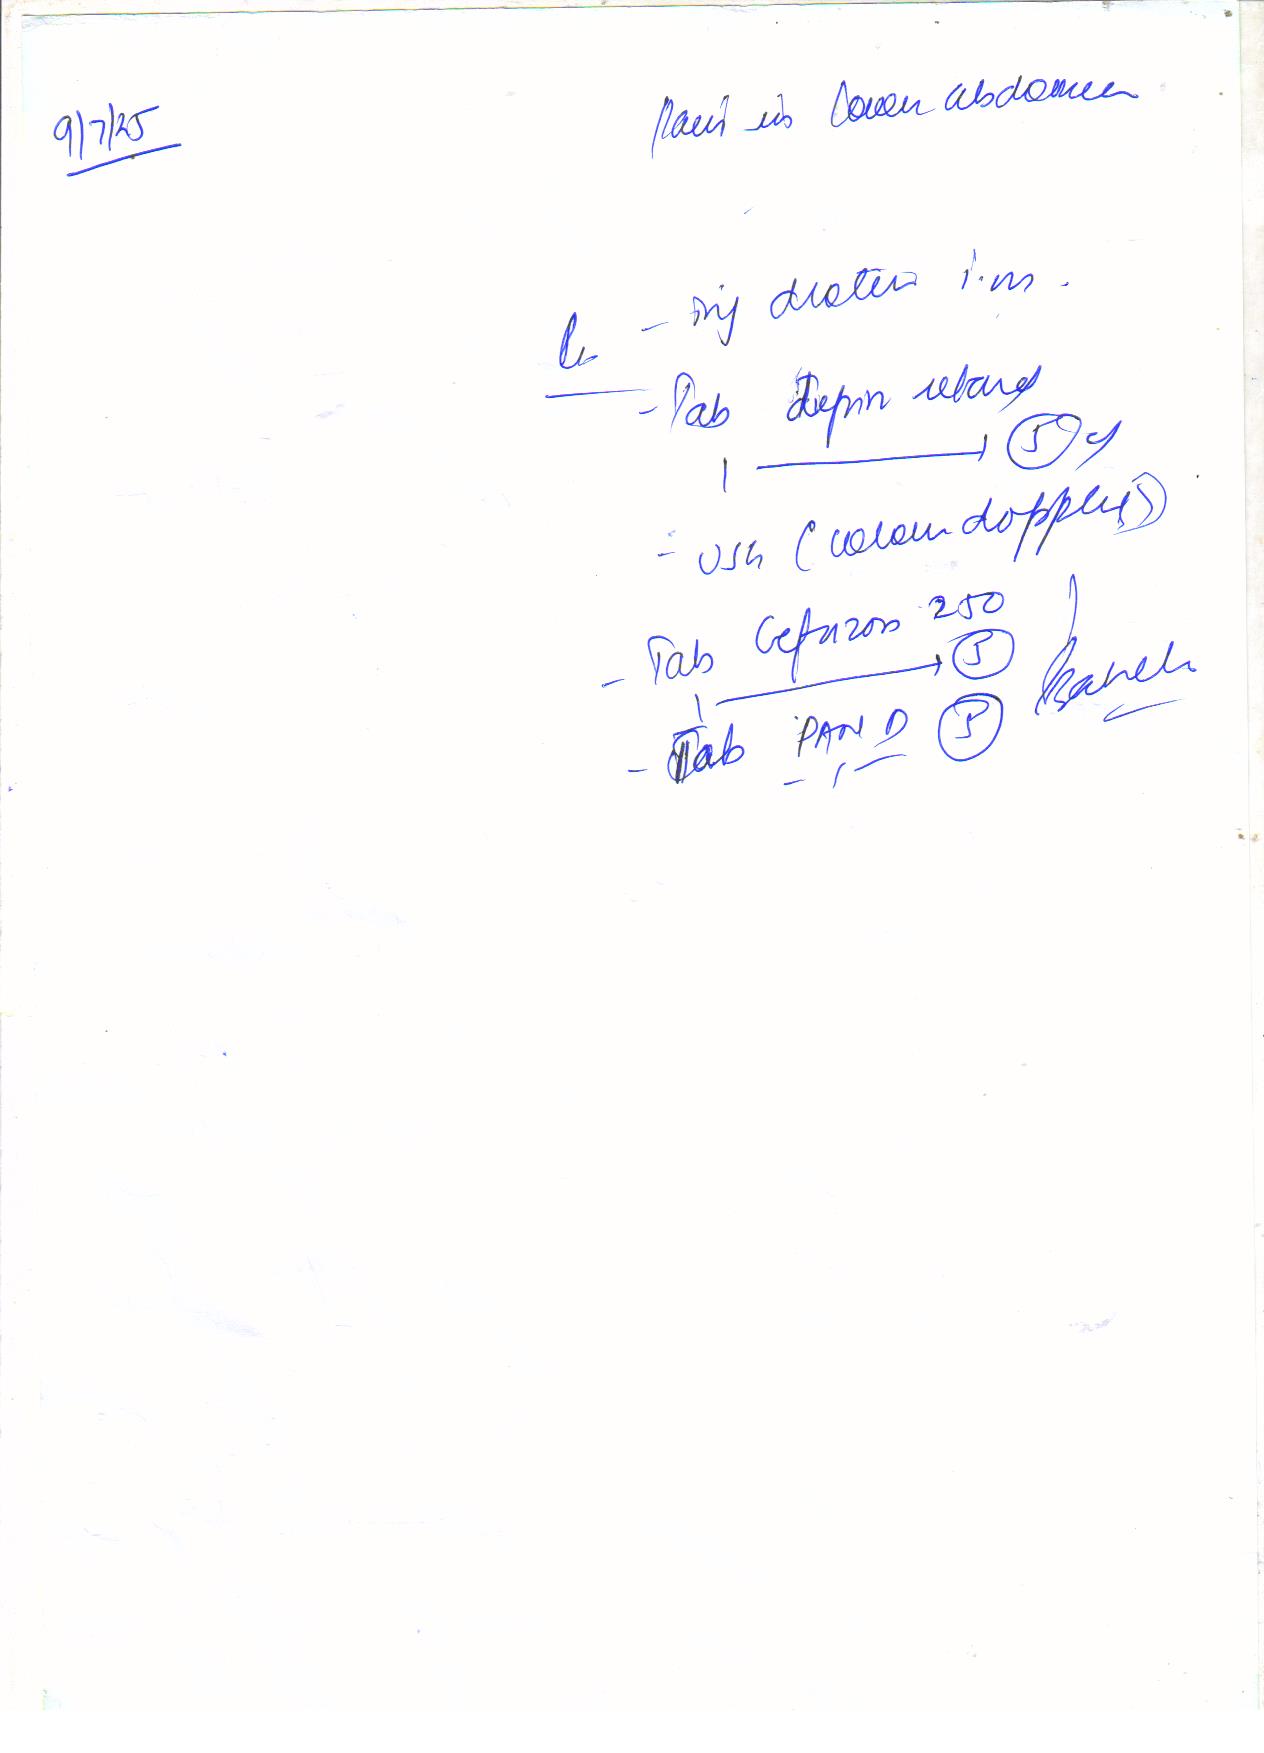 9/7/25
Pain in lower abdomen
Rx - Inj drotin i.m.
- Tab Depin retard
1 → 5
- USG (colour doppler)
- Tab 250
1 → 5
- Tab PAN D 5